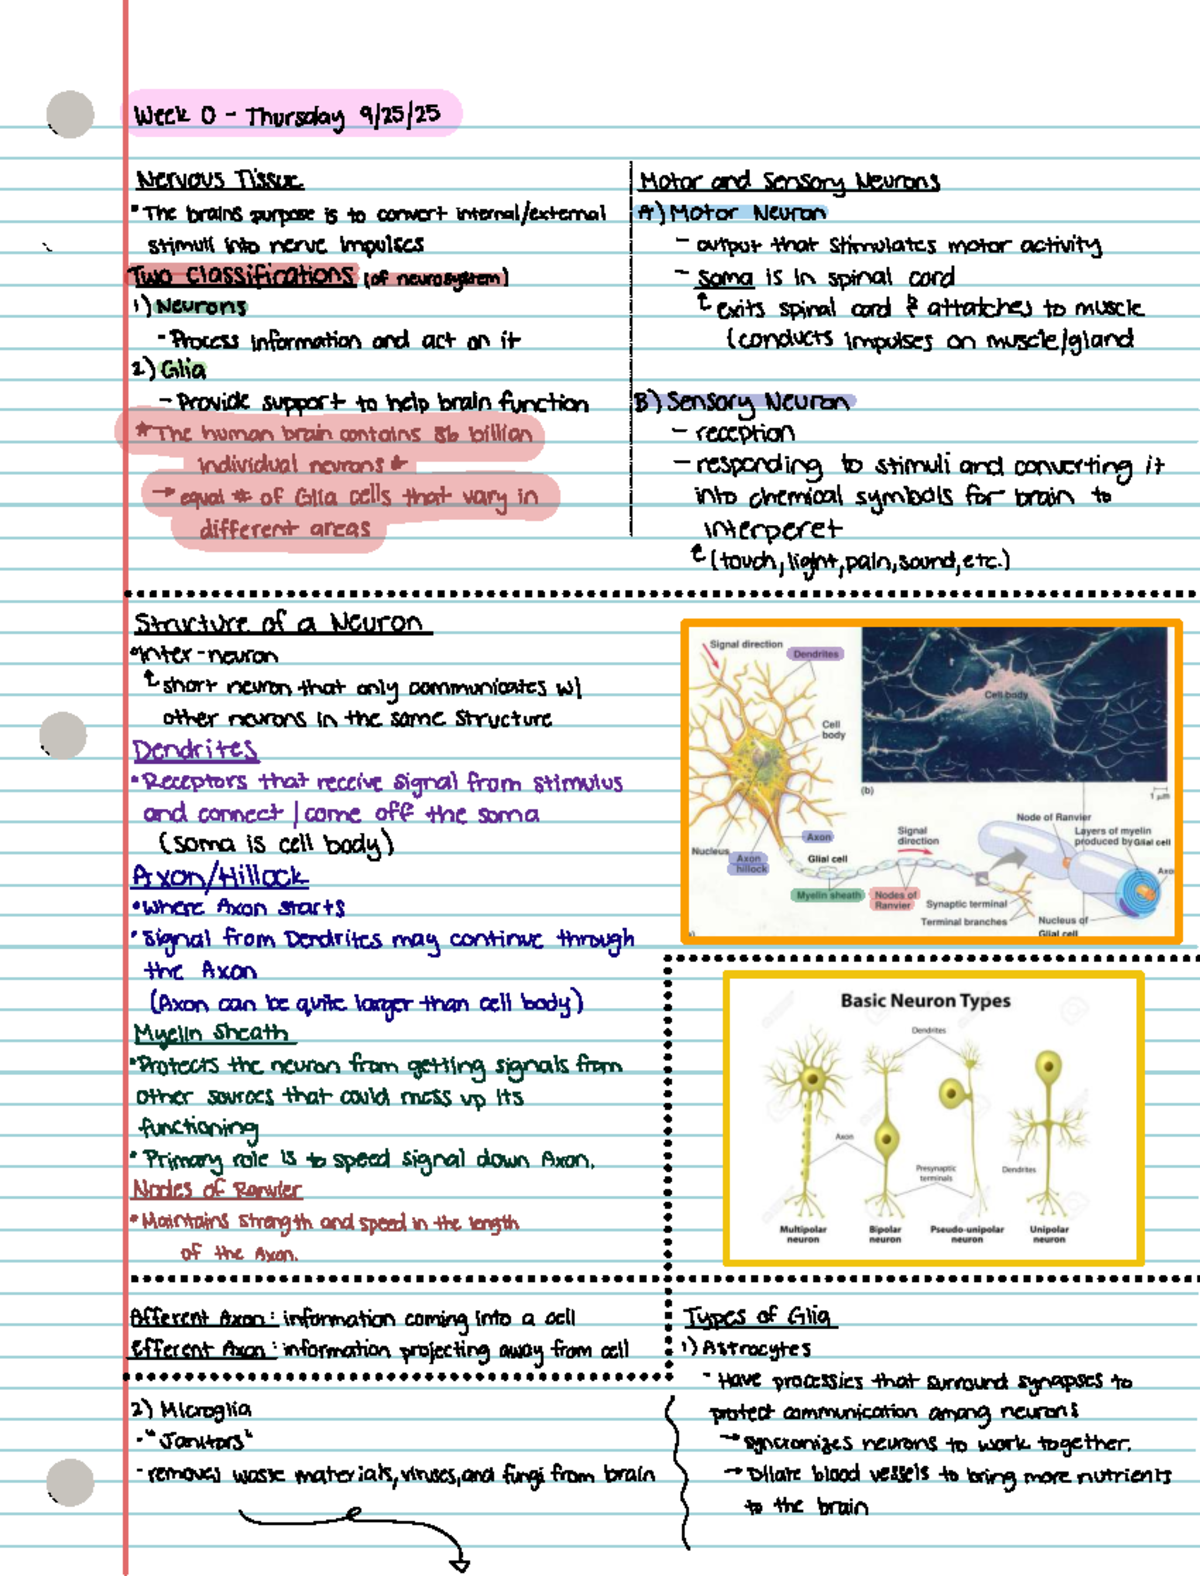 Week 0 - Thursday 9/25/25
Nervous Tissue
• The brains purpose is to convert internal/external
stimuli into nerve impulses
Two Classifications (of neurosystem)
1) Neurons
- Process information and act on it
2) Glia
- Provide support to help brain function
* The human brain contains 86 billion
individual neurons *
→ equal # of Glia cells that vary in
different areas
Motor and Sensory Neurons
A) Motor Neuron
- output that stimulates motor activity
- soma is in spinal cord
↑ exits spinal cord & attatches to muscle
(conducts impulses on muscle/gland
B) Sensory Neuron
- reception
- responding to stimuli and converting it
into chemical symbols for brain to
interperet
↑ (touch, light, pain, sound, etc.)
Structure of a Neuron
• Inter-neuron
↑ short neuron that only communicates w/
other neurons in the same structure
Dendrites
• Receptors that receive signal from stimulus
and connect / come off the soma
(soma is cell body)
Axon/Hillock
• Where Axon starts
• Signal from Dendrites may continue through
the Axon
(Axon can be quite larger than cell body)
Myelin Sheath
• Protects the neuron from getting signals from
other sources that could mess up its
functioning
• Primary role is to speed signal down Axon.
Nodes of Ranvier
• Maintains strength and speed in the length
of the Axon.
Signal direction
Dendrites
Cell
body
Cell body
(b)
1 µm
Nucleus
Axon
hillock
Axon
Glial cell
Signal
direction
Node of Ranvier
Layers of myelin
produced by Glial cell
Axo
Myelin sheath
Nodes of
Ranvier
Synaptic terminal
Terminal branches
Nucleus of
Glial cell
Basic Neuron Types
Dendrites
Axon
Presynaptic
terminals
Dendrites
Multipolar
neuron
Bipolar
neuron
Pseudo-unipolar
neuron
Unipolar
neuron
Afferent Axon: information coming into a cell
Efferent Axon: information projecting away from cell
Types of Glia
1) Astrocytes
- Have processies that surround synapses to
protect communication among neurons
→ syncronizes neurons to work together.
→ Dilate blood vessels to bring more nutrients
to the brain
2) Microglia
- "Janitors"
- removes waste materials, viruses, and fungi from brain